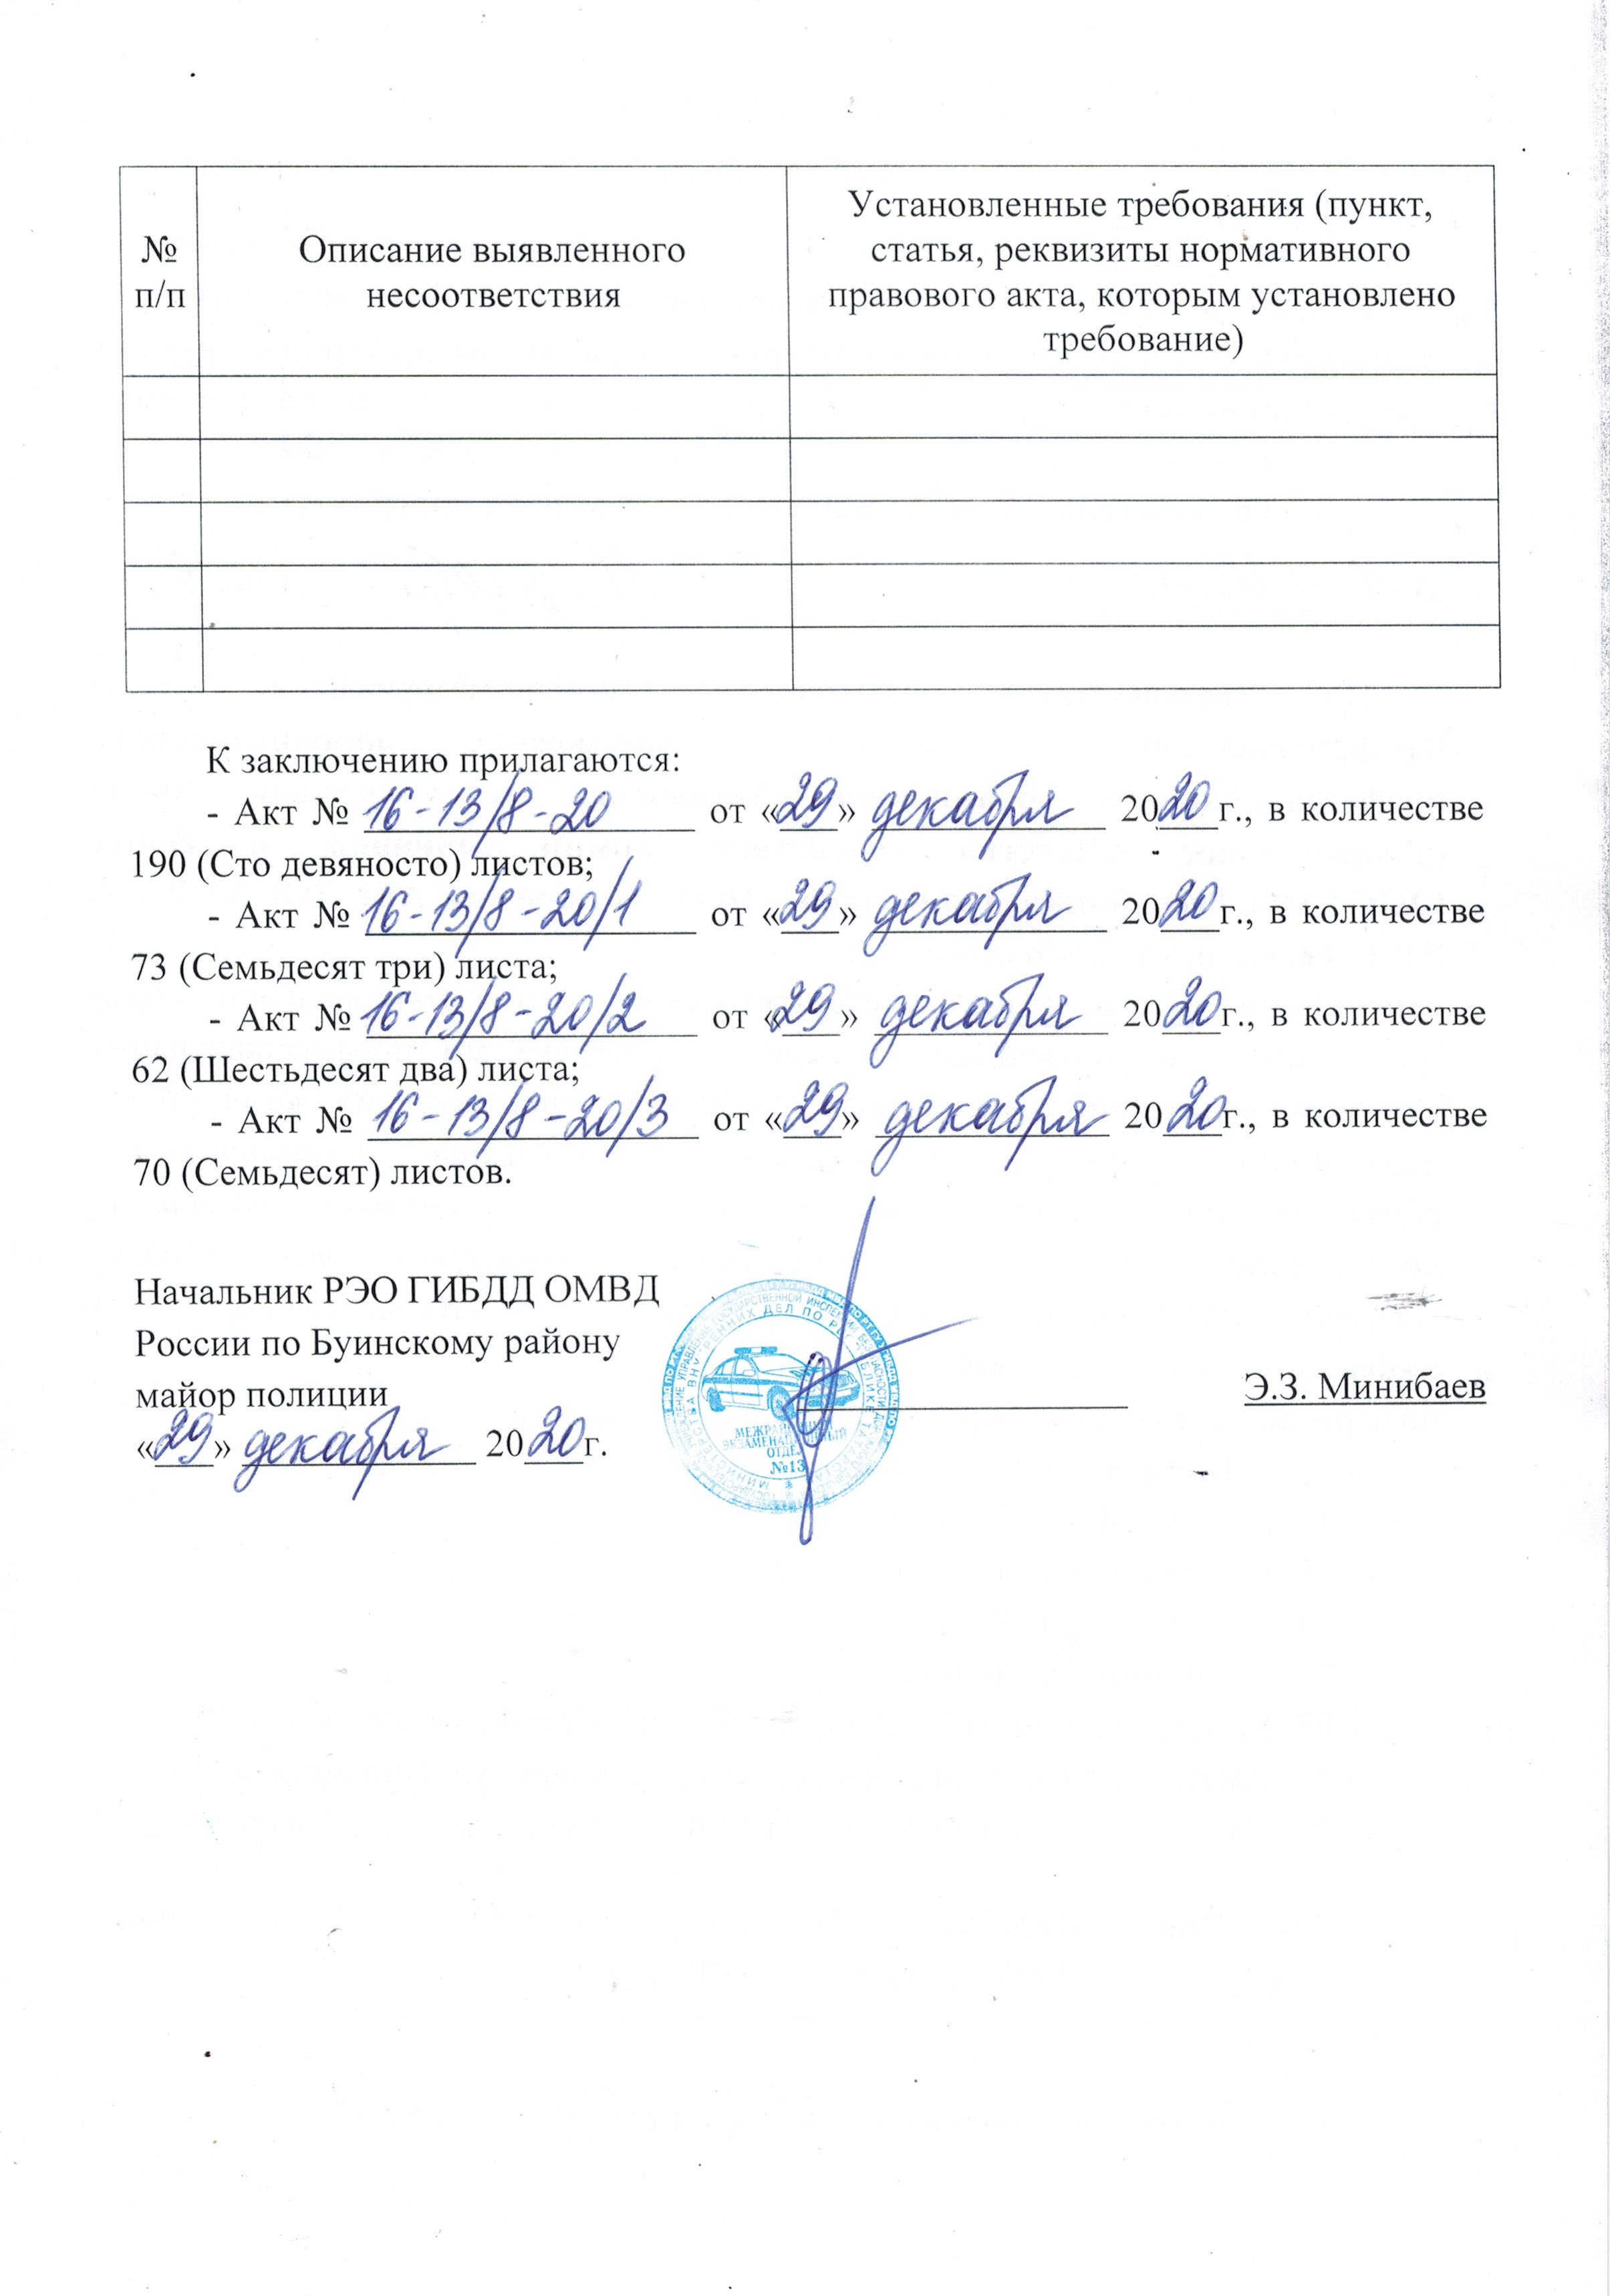 №
п/п
Описание выявленного
несоответствия
Установленные требования (пункт,
статья, реквизиты нормативного
правового акта, которым установлено
требование)
К заключению прилагаются:
- Акт № 16-13/8-20 от «29» декабря 2020 г., в количестве
190 (Сто девяносто) листов;
- Акт № 16-13/8-20/1 от «29» декабря 2020 г., в количестве
73 (Семьдесят три) листа;
- Акт № 16-13/8-20/2 от «29» декабря 2020 г., в количестве
62 (Шестьдесят два) листа;
- Акт № 16-13/8-20/3 от «29» декабря 2020 г., в количестве
70 (Семьдесят) листов.
Начальник РЭО ГИБДД ОМВД
России по Буинскому району
майор полиции
Э.З. Минибаев
«29» декабря 2020 г.
МЕЖРАЙОННЫЙ
ЭКЗАМЕНАЦИОННЫЙ
ОТДЕЛ
№13